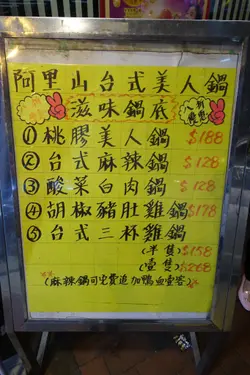 阿里山台式美人鍋
滋味鍋底
①桃膠美人鍋 $188
②台式麻辣鍋 $128
③酸菜白肉鍋 $128
④胡椒豬肚雞鍋 $178
⑤台式三杯雞鍋
(半隻) $158
(壹隻) $268
(麻辣鍋可免費追加鴨血壹客)